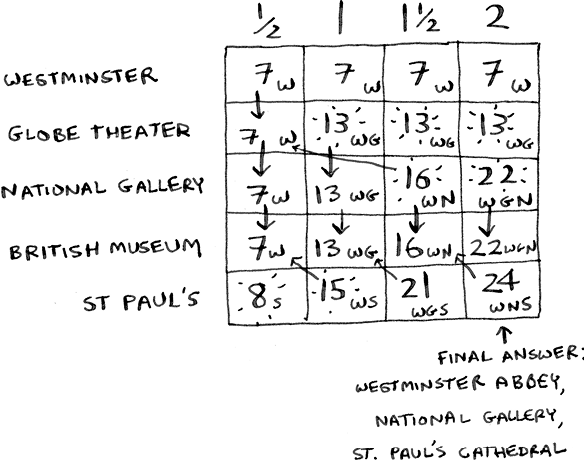 ½ 1 1½ 2
WESTMINSTER 7W 7W 7W 7W
GLOBE THEATER 7W 13WG 13WG 13WG
NATIONAL GALLERY 7W 13WG 16WN 22WGN
BRITISH MUSEUM 7W 13WG 16WN 22WGN
ST PAUL'S 8S 15WS 21WGS 24WNS
FINAL ANSWER:
WESTMINSTER ABBEY,
NATIONAL GALLERY,
ST. PAUL'S CATHEDRAL